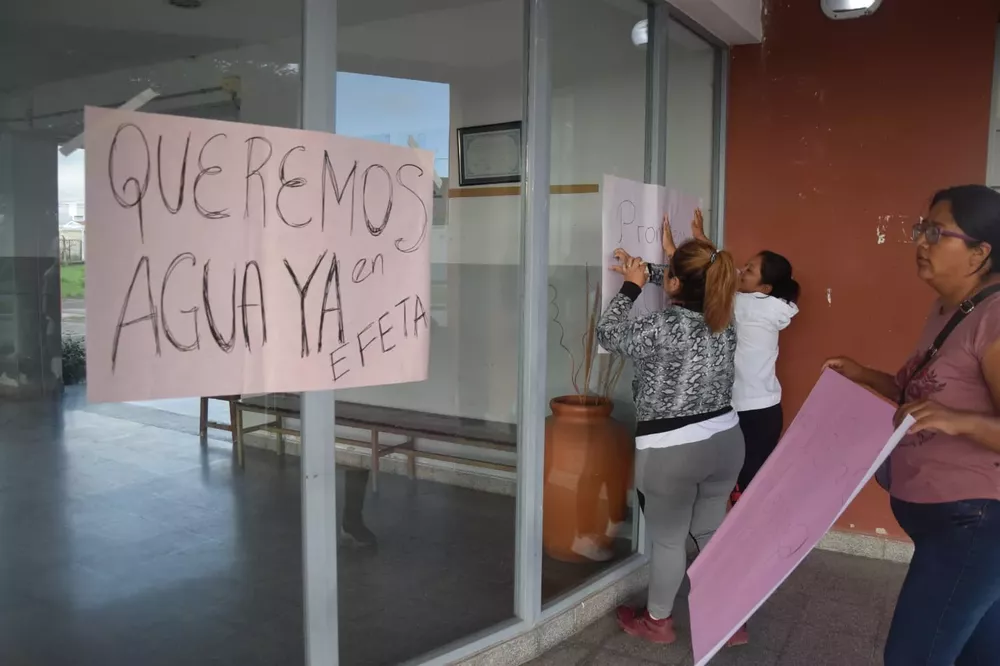 QUEREMOS
AGUA YA en
EFETA